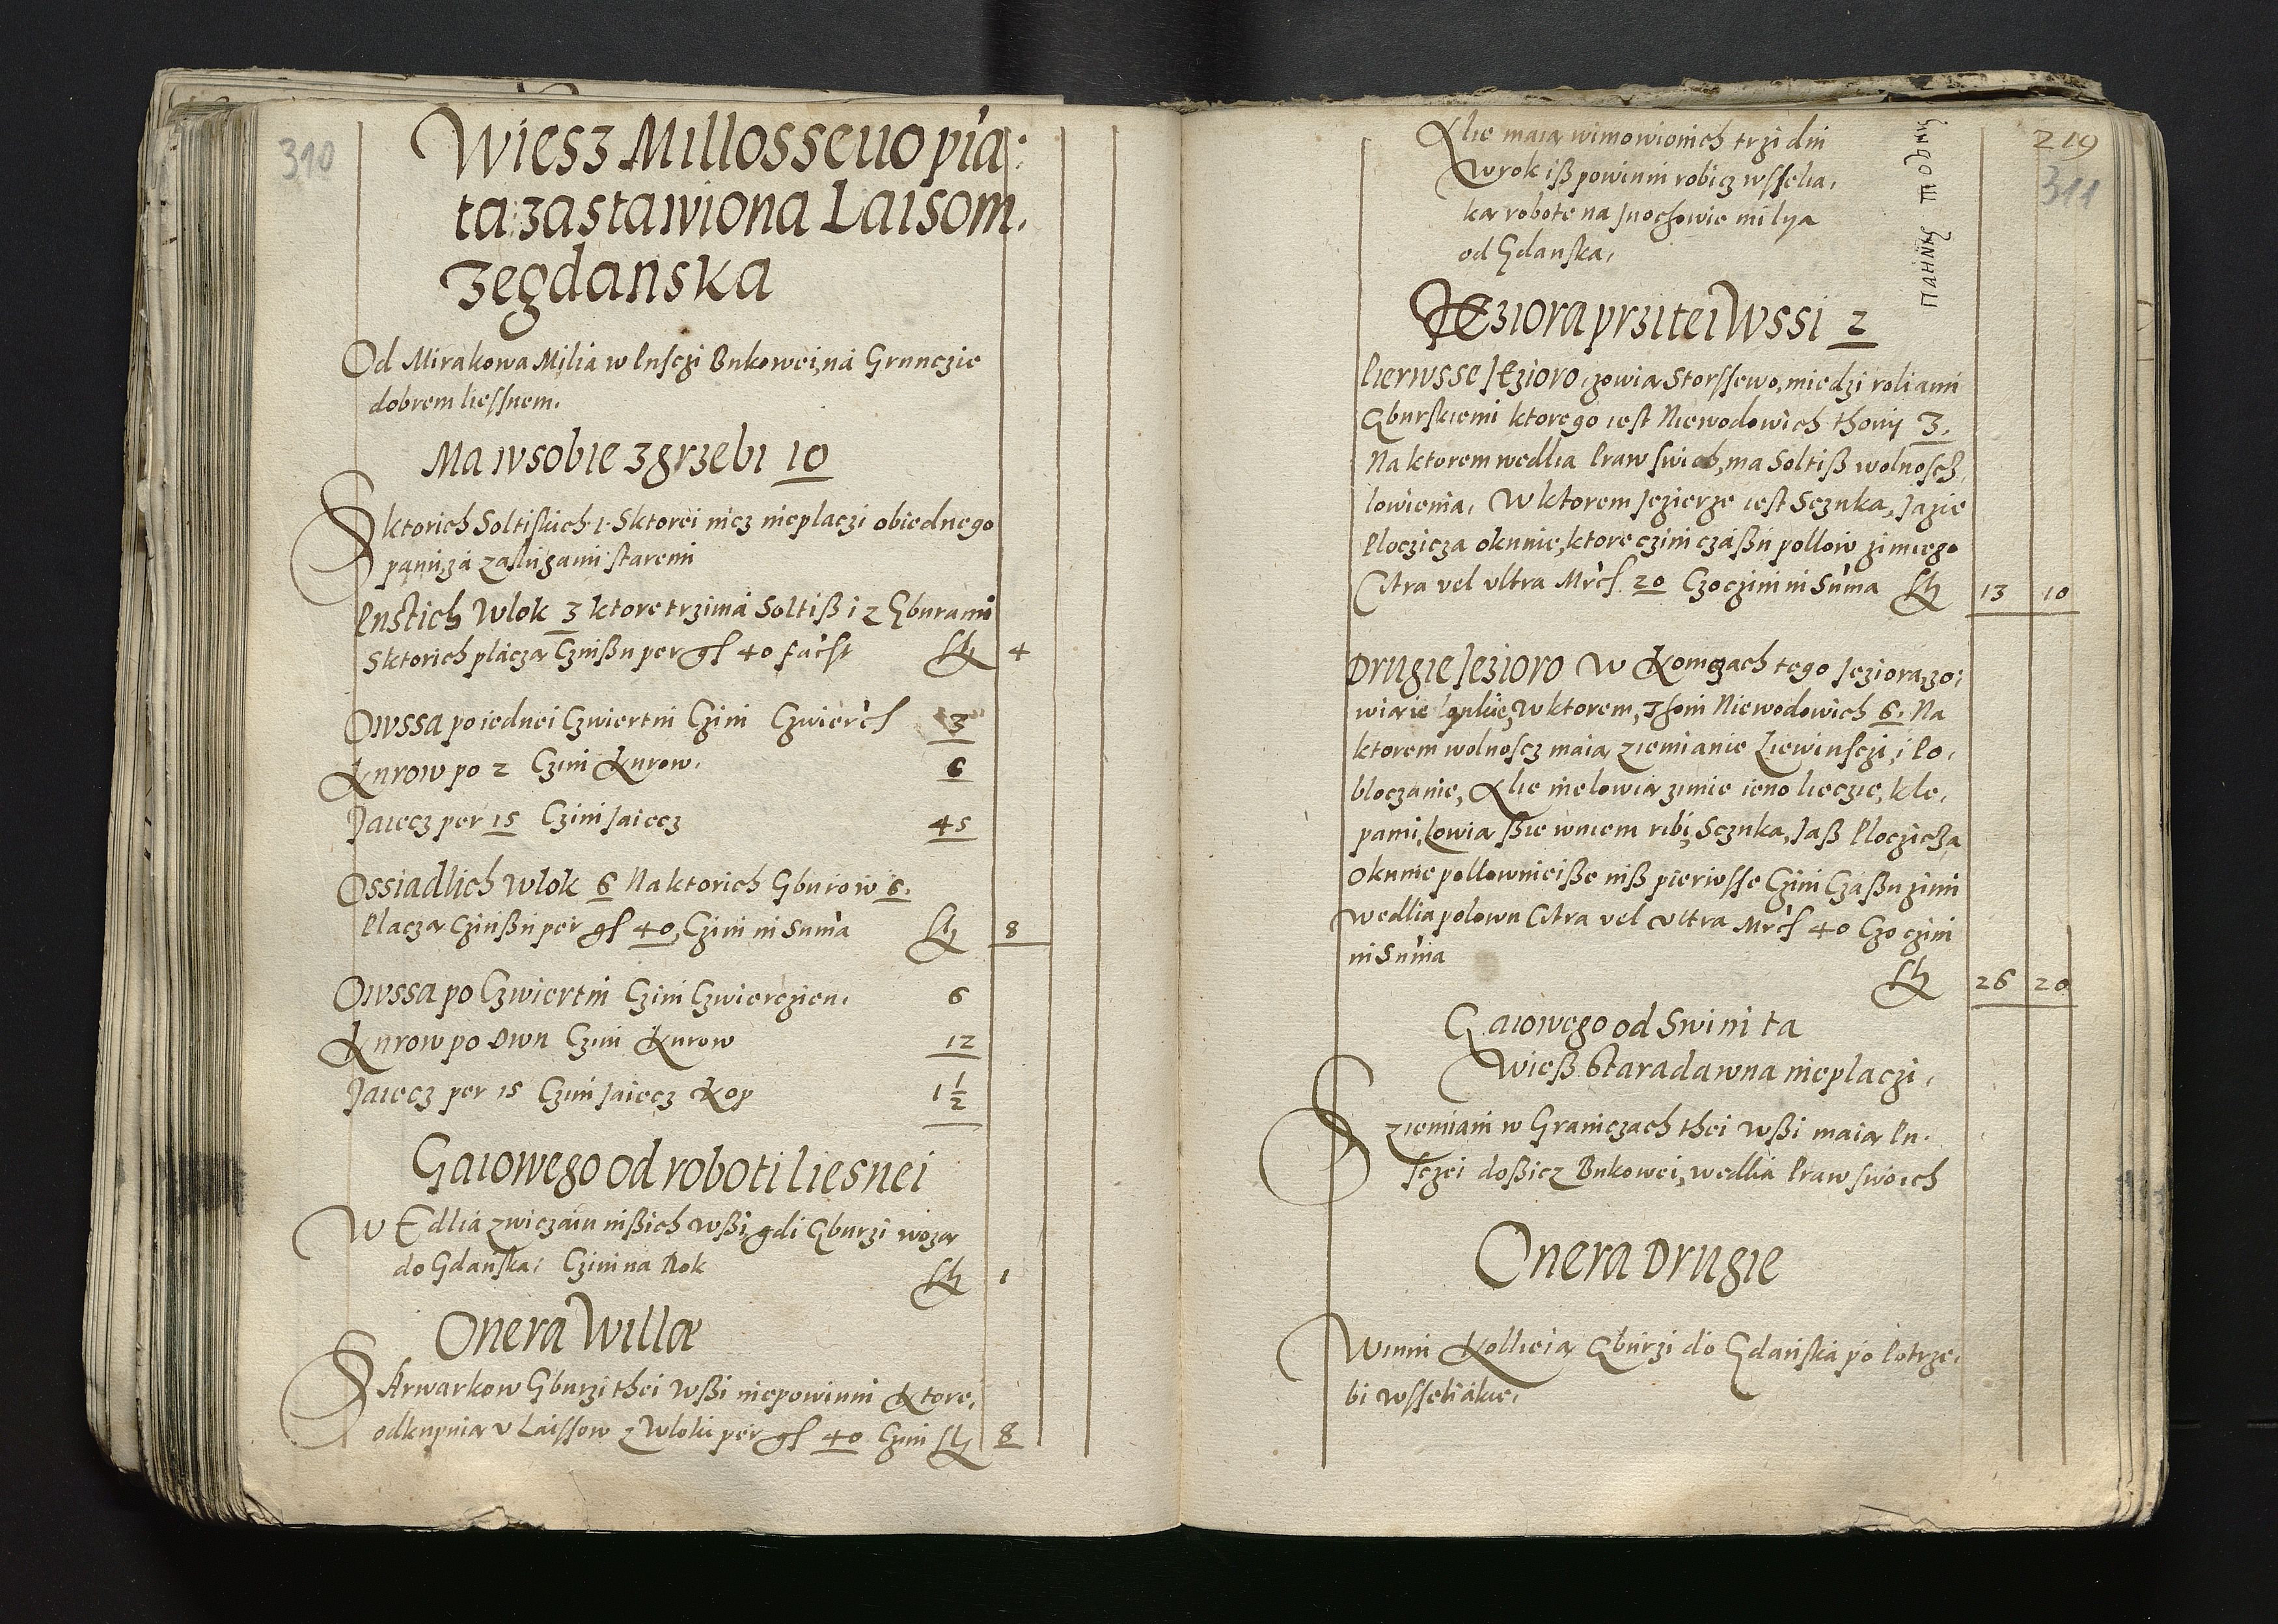 310
Wiesz Millossewo pia:
ta: zastawiona Laisom.
Zegdanska
Od Mirakowa Milia w Pusczi Bukowei, na Grunczie
dobrem liessnem.
Ma wsobie zgrzebi 10
S ktorich Soltiskich 1. Sktorei nicz nieplaczi obiednego
panu, za zaslugami staremi
Pustich Wlok 3 ktore trzima Soltiß i 2 Gburami
Sktorich placza Czinßu per gſ 40 facſt 4
Owssa po iednei Czwiertni Czini Czwierćſ 3
Kurow po 2 Czini Kurow. 6
Jaiecz per 15 Czini Jaiecz 45
Ossiadlich Wlok 6 Na ktorich Gburow 6.
Placza Czinßu per gſ 40, Czini in Suma 8
Owssa po Czwiertni Czini Czwierczien. 6
Kurow po Dwu Czini Kurow 12
Jaiecz per 15 Czini Jaiecz Kop 1 1/2
Gaiowego od roboti liesnei
WEdlia zwiczaiu inßich wßi, gdi Gburzi woza
do Gdanska, Czini na Rok 1
Onera Willæ
SArwarkow Gburzi thei wßi niepowinni Ktore,
odkupuia v Laissow z Wloki per gſ 40 Czini 8
219
311
Alie maia wimowionich trzi dni
Wrok iß powinni robicz wsselia,
ka robote na Juochowie milya
od Gdanska,
JEziora przi tei Wssi 2
Pierwsse JEzioro, zowia Storssewo, miedzi roliami
Gburskiemi ktorego iest Niewodowich thony 3.
Na ktorem wedlia Praw swich, ma Soltiß wolnoscz,
lowienia, W ktorem Jezierze iest Sczuka, Jazie
Ploczicza okunie, ktore czini czaßu pollow zimnego
Citra vel vltra Mrćſ 20 Czo czini in Suma 13 10
Drugie Jezioro W Konczach tego Jeziora, zo:
wia ie lankie, W ktorem, Thoni Niewodowich 6. Na
ktorem wolnoscz maia ziemianie Liewinsczi, i Po,
bloczanie, Alie nielowia zimie ieno lieczie, kle,
pami, Lowia ßie wniem ribi, Sczuka, Jaß Ploczicza
okunie pollownieiße niß pierwsse Czini Czaßu zimi
wedlia polowu Citra vel vltra Mrćſ 40 Czo czini
in Suma 26 20
Gaiowego od Swini ta
Wieß Staradawna nieplaczi,
Sziemiani w Graniczach thei wßi maia Pu.
sczei doßicz Bukowei, wedlia Praw swoich
Onera Drugie
Winni Kolieia Gburzi do Gdanska po Potrze,
bi wsseliakie,